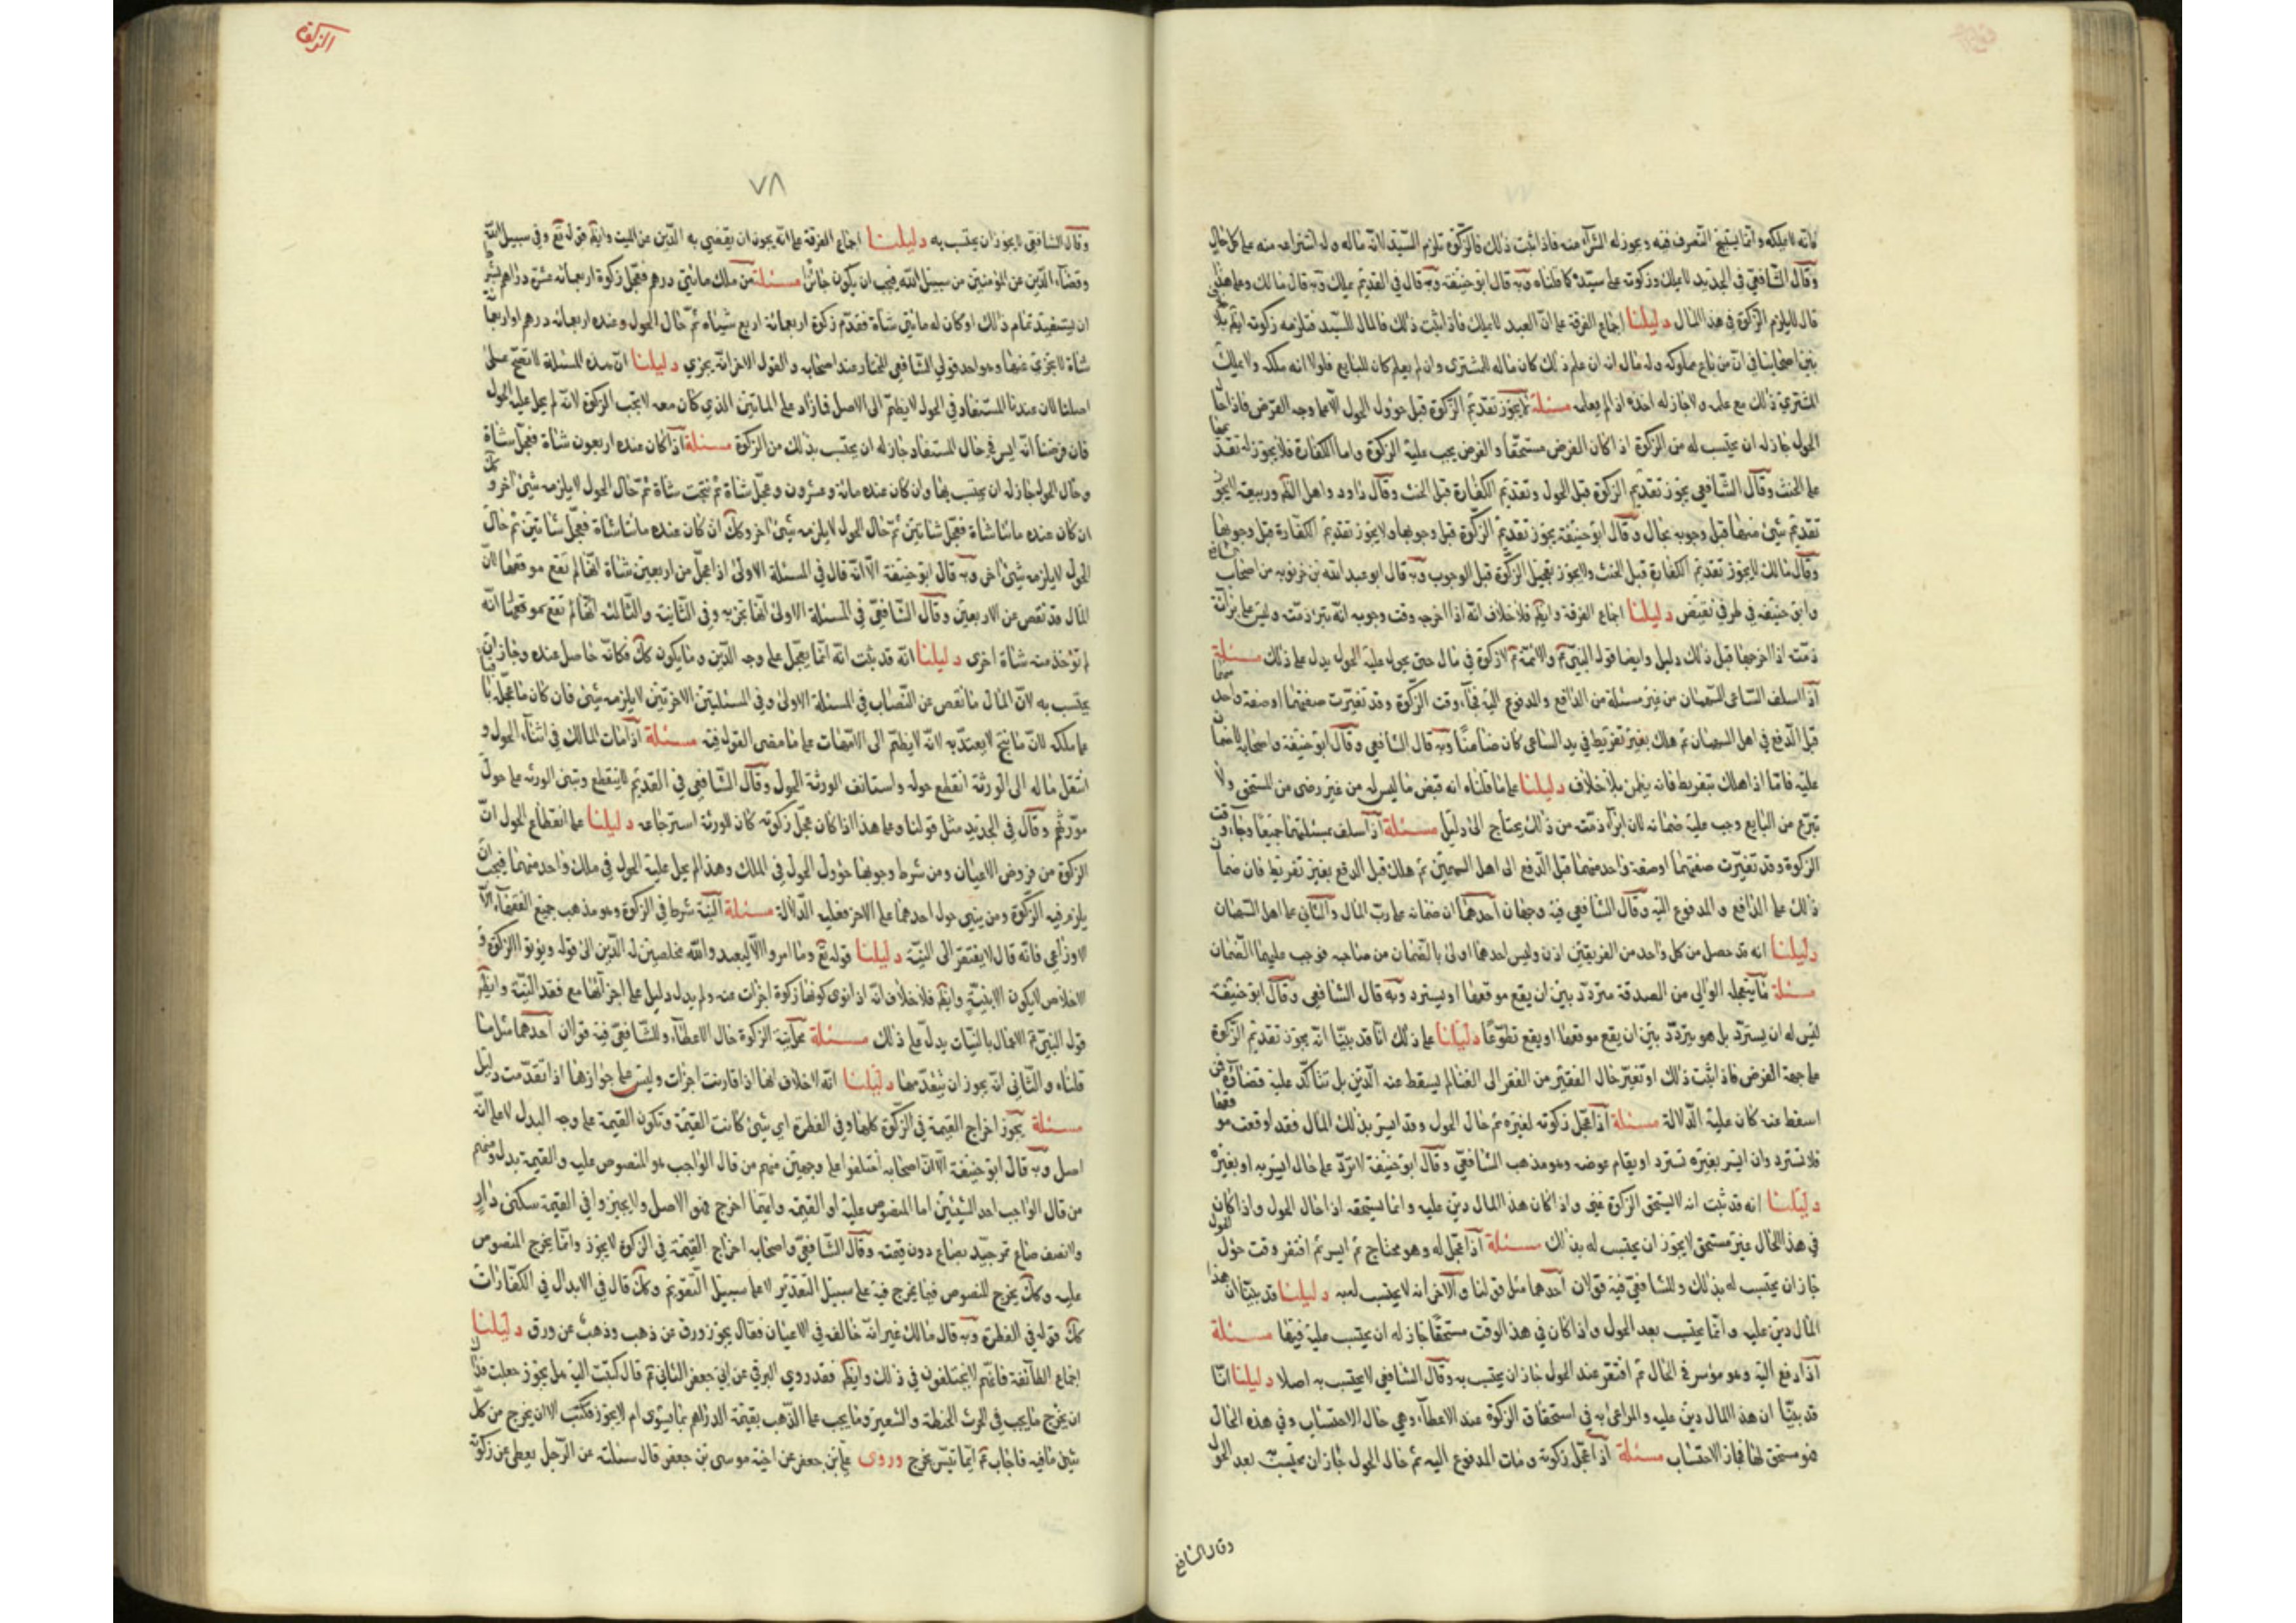 فانه لا يملكه وانما يستبيح التصرف فيه ويجوز له الشراء منه فاذا ثبت ذلك فالزكوة تلزم السيد لانه ماله وله انتزاعه منه على كل حال
وقال الشافعي في الجديد لا يملك وزكوته على سيده كما قلناه وبه قال ابو حنيفة وقال في القديم يملك وبه قال مالك وعلى هذا
قال لا يلزم الزكوة في هذا المال دليلنا اجماع الفرقة على ان العبد لا يملك فاذا ثبت ذلك فالمال للسيد فتلزمه زكوته
بين اصحابنا في ان من باع مملوكه وله مال انه ان علم ذلك كان ماله للمشتري وان لم يعلم كان للبايع فلولا انه ملكه ولا يملك
المشتري ذلك مع علمه ولا جاز له اخذه اذا لم يعلمه مسئلة لا يجوز تقديم الزكوة قبل حؤول الحول الا على وجه القرض فاذا حال
الحول جاز له ان يحتسب له من الزكوة اذا كان المقرض مستحقا والقرض يجب عليه الزكوة واما الكفارة فلا يجوز له تقديمها
على الحنث وقال الشافعي يجوز تقديم الزكوة قبل الحول وتقديم الكفارة قبل الحنث وقال داود واهل الظاهر وربيعة لا يجوز
تقديم شيئ منهما قبل وجوبه بحال وقال ابو حنيفة يجوز تقديم الزكوة قبل وجوبها ولا يجوز تقديم الكفارة قبل وجوبها
وقال مالك لا يجوز تقديم الكفارة قبل الحنث ولا يجوز تعجيل الزكوة قبل الوجوب وبه قال ابو عبيد الله بن خربويه من اصحاب
وابو حنيفه في طرفي نقيض دليلنا اجماع الفرقة وايضا فلا خلاف انه اذا اخرجه وقت وجوبه انه تبرء ذمته وليس على براءة
ذمته اذا اخرجها قبل ذلك دليل وايضا قوله النبي والائمة لا زكوة في مال حتى يحول عليه الحول يدل على ذلك مسئلة
اذا السلف الساعي السهمان من غير مسئلة من الدافع والمدفوع اليه فجاء وقت الزكوة وقد تغيرت صفتهما او صفة واحد
قبل الدفع في اهل السهمان ثم هلك بغير تفريط في يد الساعي كان ضامنا وبه قال الشافعي وقال ابو حنيفة واصحابه لا ضمان
عليه فاما اذا هلك بتفريط فانه يضمن بلا خلاف دليلنا على ما قلناه انه قبض ما ليس له من غير رضى من المستحق ولا
تبرع من البايع وجب عليه ضمانه لان ابراء ذمته من ذلك يحتاج الى دليل مسئلة اذا اسلف بمسئلتهما جميعا وجاء وقت
الزكوة وقد تغيرت صفتهما او صفة واحد منهما قبل الدفع الى اهل السهمين ثم هلك قبل الدفع بغير تفريط فان ضمان
ذلك على الدافع والمدفوع اليه وقال الشافعي فيه وجهان احدهما ان ضمانه على رب المال والثاني على اهل السهمان
دليلنا انه قد حصل من كل واحد من الفريقين اذن وليس احدهما اولى بالضمان من صاحبه فوجب عليهما الضمان
مسئلة ما يتعجله الوالي من الصدقة متردد بين ان يقع موقعها او يسترد وبه قال الشافعي وقال ابو حنيفة
ليس له ان يسترد بل هو يتردد بين ان يقع موقعها او يقع تطوعا دليلنا على ذلك انا قد بينا انه يجوز تقديم الزكوة
على جهة القرض فاذا ثبت ذلك او تغير حال الفقير من الفقر الى الغنا لم يسقط عنه الدين بل تتأكد عليه قضاءه فمن
اسقط عنه كان عليه الدلالة مسئلة اذا عجل زكوته لغيره ثم حال الحول وقد ايسر بذلك المال فقد اوقعت موقعها
فلا تسترد وان ايسر بغيره تسترد او يقام عوضه وهو مذهب الشافعي وقال ابو حنيفة لا ترد على حال ايسر به او بغيره
دليلنا انه قد ثبت انه لا يستحق الزكوة غني واذا كان هذا المال دين عليه وانما يستحقه اذا حال الحول واذا كان
في هذا الحال غير مستحق لا يجوز ان يحتسب له بذلك مسئلة اذا عجل له وهو محتاج ثم ايسر ثم افتقر وقت حؤول الحول
جاز ان يحتسب له بذلك وللشافعي فيه قولان احدهما مثل قولنا والاخر انه لا يحتسب له به دليلنا قد بينا ان هذا
المال دين عليه وانما يحتسب بعد الحول واذا كان في هذا الوقت مستحقا جاز له ان يحتسب عليه فيها مسئلة
اذا دفع اليه وهو موسر في الحال ثم افتقر عند الحول جاز ان يحتسب به وقال الشافعي لا يحتسب به اصلا دليلنا انا
قد بينا ان هذا المال دين عليه والمراعى به في استحقاق الزكوة عند الاعطاء وهي حال الاحتساب وفي هذه الحال
هو مستحق لها فجاز الاحتساب مسئلة اذا عجل زكوته ومات المدفوع اليه ثم حال الحول جاز ان يحتسب بعد الحول
وقال الشافعي
الزكوة
٧٨
وقال الشافعي لا يجوز ان يحتسب به دليلنا اجماع الفرقة على انه يجوز ان يقضي به الدين عن الميت وايضا قوله تع وفي سبيل الله
وقضاء الدين عن المؤمنين من سبيل الله فيجب ان يكون جائزا مسئلة من ملك مائتي درهم فعجل زكوة اربعمائة عشرة دراهم
ان يستفيد تمام ذلك او كان له مائتي شاة فقدم زكوة اربعمائة اربع شياه ثم حال الحول وعنده اربعمائة درهم او اربعمائة
شاة لا يجزي عنها وهو احد قولي الشافعي المختار عند اصحابه والقول الاخر انه يجزي دليلنا ان هذه المسئلة لا تصح على
اصلنا لان عندنا المستفاد في الحول لا يضم الى الاصل فما زاد على المائتين الذي كان معه لا يجب الزكوة لانه لم يحل عليه الحول
فان فرضنا انه ايسر في حال المستفاد جاز له ان يحتسب بذلك من الزكوة مسئلة اذا كان عنده اربعون شاة فعجل شاة
وحال الحول جاز له ان يحتسب بها وان كان عنده مائة وعشرون وعجل شاة ثم نتجت شاة ثم حال الحول لا يلزمه شيئ اخر وكك
ان كان عنده مائتا شاة فعجل شاتين ثم حال الحول لا يلزمه شيئ اخر وكك ان كان عنده مائتا شاة فعجل شاتين ثم حال
الحول لا يلزمه شيئ اخر وبه قال ابو حنيفة الا انه قال في المسئلة الاولى اذا عجل من اربعين شاة انها لم تقع موقعها لان
المال قد نقص عن الاربعين وقال الشافعي في المسئلة الاولى انها تجزيه وفي الثانية والثالثة انها لم تقع موقعها انه
لم تؤخذ منه شاة اخرى دليلنا انه قد ثبت انه انما يعجل على وجه الدين وما يكون كك فكانه حاصل عنده وجاز ان
يحتسب به لان المال ما نقص عن النصاب في المسئلة الاولى وفي المسئلتين الاخرتين لا يلزمه شيئ فان كان ما عجل
على ملكه لان ما نتج لا يعتد به لانه لا يضم الى الامهات على ما مضى القول فيه مسئلة اذا مات المالك في اثناء الحول و
انتقل ماله الى الورثة انقطع حوله واستانف الورثة الحول وقال الشافعي في القديم لا ينقطع وتبنى الورثة على حول
مورثهم وقال في الجديد مثل قولنا وعلى هذا اذا كان عجل زكوته كان للورثة استرجاعه دليلنا على انقطاع الحول ان
الزكوة من فروض الاعيان ومن شرط وجوبها حؤول الحول في الملك وهذا لم يحل عليه الحول في ملك واحد منهما فيجب ان
يلزم فيه الزكوة ومن يبني حول احدهما على الاخر فعليه الدلالة مسئلة النية شرط في الزكوة وهو مذهب جميع الفقهاء الا
الاوزاعي فانه قال لا يفتقر الى النية دليلنا قوله تع وما امروا الا ليعبدوا الله مخلصين له الدين الى قوله ويؤتوا الزكوة و
الاخلاص لا يكون الا بنية وايضا فلا خلاف انه اذا نوى كونها زكوة اجزأت عنه ولم يدل دليل على اجزائها مع فقد النية وايضا
قول النبي الاعمال بالنيات يدل على ذلك مسئلة محل نية الزكوة حال الاعطاء وللشافعي فيه قولان احدهما مثل ما
قلناه والثاني انه يجوز ان يتقدمها دليلنا انه لا خلاف انها اذا قارنت اجزأت وليس على جوازها اذا تقدمت دليل
مسئلة يجوز اخراج القيمة في الزكوة كلها وفي الفطرة اي شيئ كانت القيمة وتكون القيمة على وجه البدل لا على انه
اصل وبه قال ابو حنيفة الا ان اصحابه اختلفوا على وجهين منهم من قال الواجب هو المنصوص عليه والقيمة بدل ومنهم
من قال الواجب احد الشيئين اما المنصوص عليه او القيمة وايهما اخرج فهو الاصل ولا يجيزوا في القيمة سكنى دار
ولا نصف صاع تمر جيد بصاع دون قيمته وقال الشافعي واصحابه اخراج القيمة في الزكوة لا يجوز وانما يخرج المنصوص
عليه وكك يخرج المنصوص فيما يخرج فيه على سبيل التقدير لا على سبيل التقويم وكك قال في الابدال في الكفارات
كك قوله في الفطرة وبه قال مالك غير انه خالف في الاعيان فقال يجوز ورق عن ذهب وذهب عن ورق دليلنا
اجماع الطائفة فانهم لا يختلفون في ذلك وايضا فقد روي البرقي عن ابي جعفر الثاني قال كتبت اليه هل يجوز جعلت فداك
ان يخرج ما يجب في الحرث الحنطة والشعير وما يجب على الذهب بقيمة الدراهم بما يسوى ام لا يجوز فكتب الا ان يخرج من كل
شيئ ما فيه فاجاب ايما تيسر يخرج وروى علي بن جعفر عن اخيه موسى بن جعفر قال سئلته عن الرجل يعطي عن زكوته